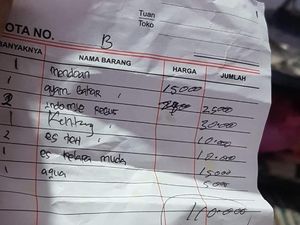 Tuan
Toko
OTA NO. B
BANYAKNYA NAMA BARANG HARGA JUMLAH
1 mendoan 15.000
1 ayam bakar 25.000
2 indomie rebus 30.000
1 kentang 10.000
2 es teh 10.000
1 es kelapa muda 15000
1 aqua 5000
110.000